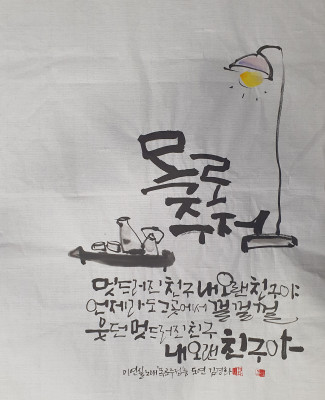 목로
주점
멋드러진 친구 내 오랜 친구야
언제라도 그곳에서 껄껄껄
웃던 멋드러진 친구
내 오랜 친구야
이연실 노래 목로주점 도연 김경화